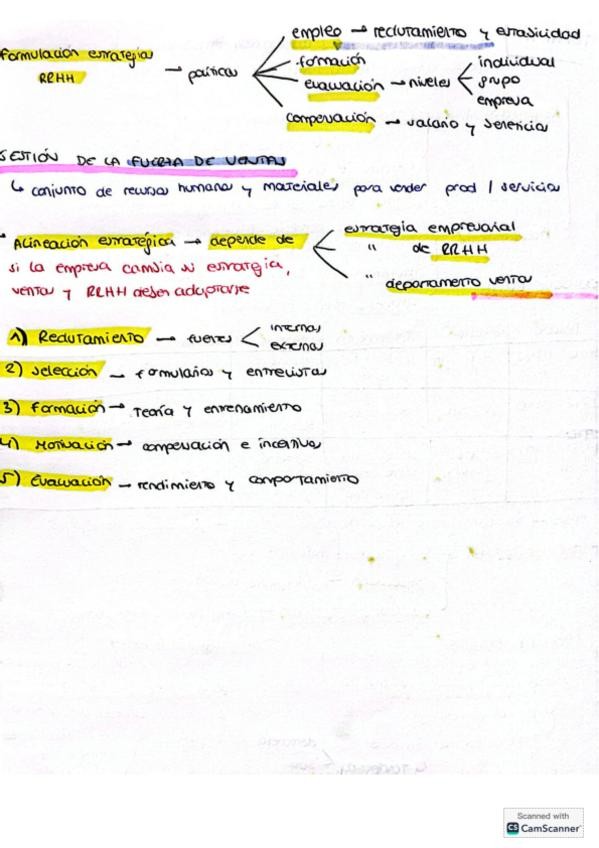 empleo → reclutamiento y estabilidad
Formulación estrategia RRHH → políticas
formación
evaluación → niveles
individual
grupo
empresa
compensación → salario y beneficios
GESTIÓN DE LA FUERZA DE VENTAS
↳ conjunto de recursos humanos y materiales para vender prod / servicios
Alineación estratégica → depende de
estrategia empresarial
" de RRHH
" departamento ventas
si la empresa cambia su estrategia,
ventas y RRHH deben adaptarse
1) Reclutamiento → fuentes
internas
externas
2) Selección → formularios y entrevistas
3) Formación → Teoría y entrenamiento
4) Motivación → compensación e incentivos
5) Evaluación → rendimiento y comportamiento
Scanned with
CS CamScanner